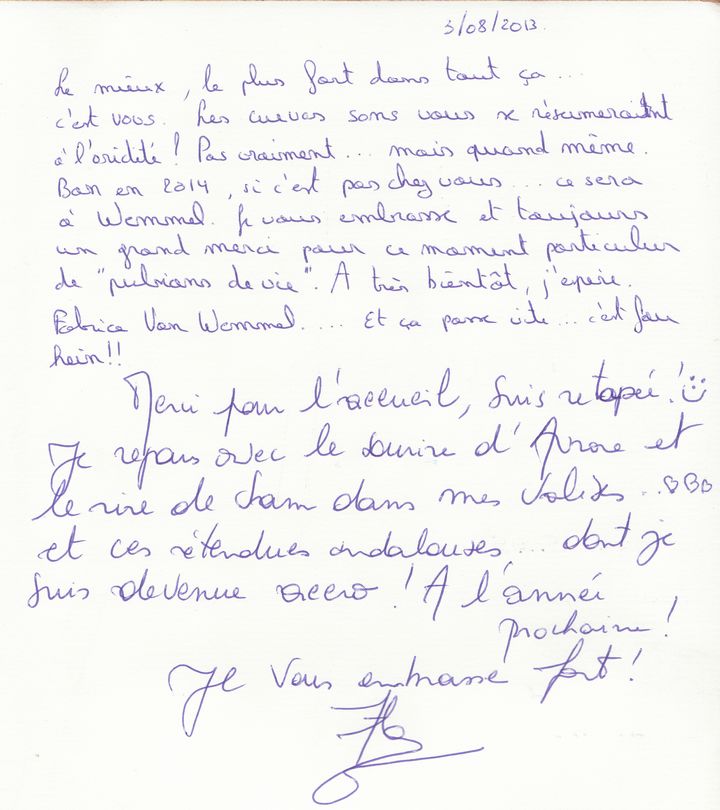 3/08/2013.
Le mieux, le plus fort dans tout ça ...
c'est vous. Les cuevas sans vous se résumeraient
à l'aridité! Pas vraiment... mais quand même.
Bon en 2014, si c'est pas chez vous... ce sera
à Wemmel. Je vous embrasse et toujours
un grand merci pour ce moment particulier
de "pulsions de vie". A très bientôt, j'espère.
Fabrice Van Wemmel.... Et ça passe vite... c'est fou
hein!!
Merci pour l'accueil, suis retapée!
Je repars avec le sourire d' et
le rire de Cham dans mes valises...
et ces étendues andalouses... dont je
suis devenue accro! A l'année
prochaine!
Je vous embrasse fort!